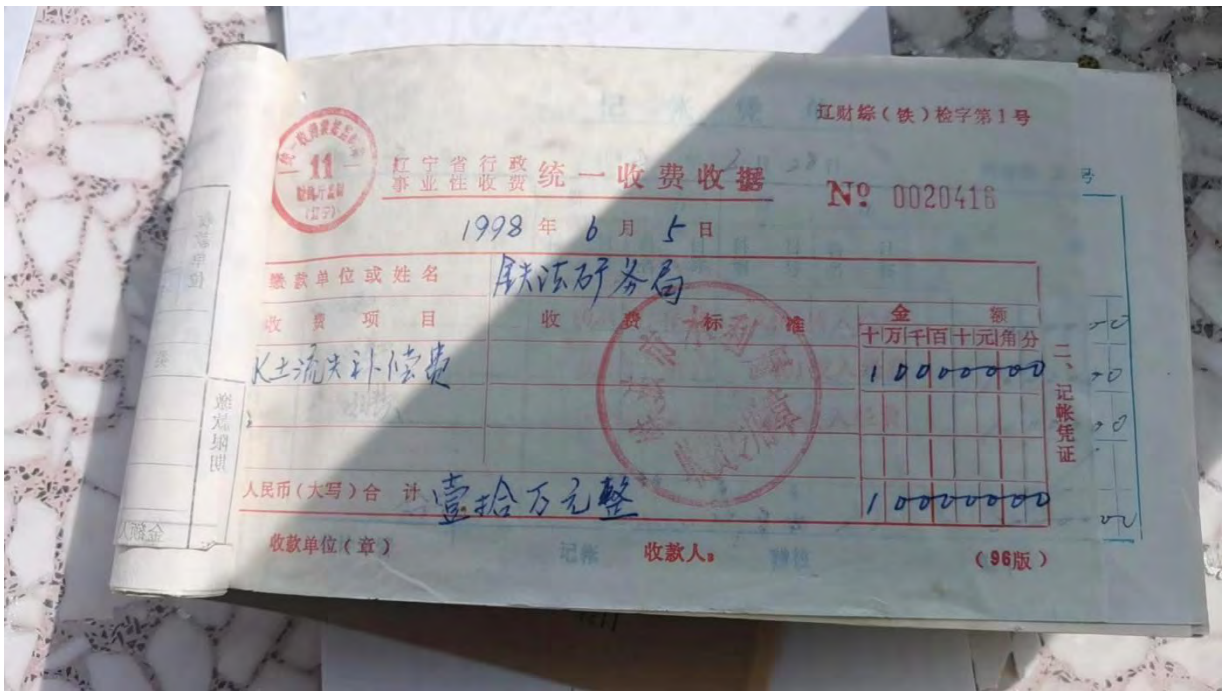 辽财综(铁)检字第1号
11
辽宁省行政
事业性收费
统一收费收据
№ 0020416
1998 年 6 月 5 日
缴款单位或姓名 铁法矿务局
收费项目 收费标准 金额
十万千百十元角分
水土流失补偿费 10000000
人民币(大写)合计 壹拾万元整 10000000
二、记帐凭证
收款单位(章) 收款人: (96版)
缴款限期